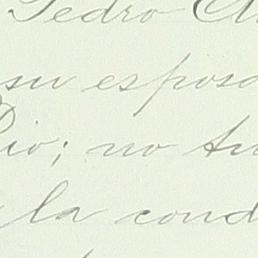 Pedro
su esposa
Pio; no
la cond